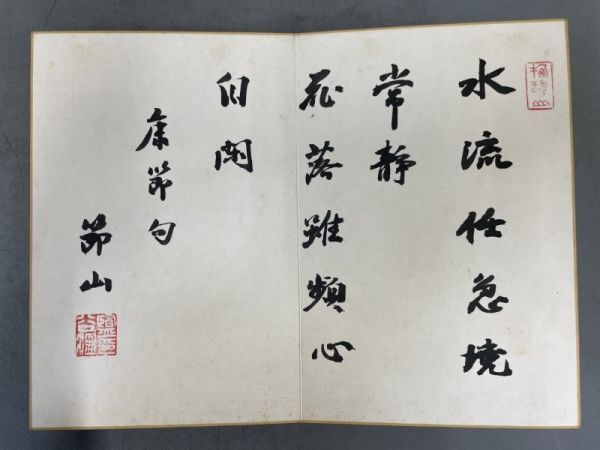 水流任急境
常静
花落雖頻心
自閑
康節句
節山